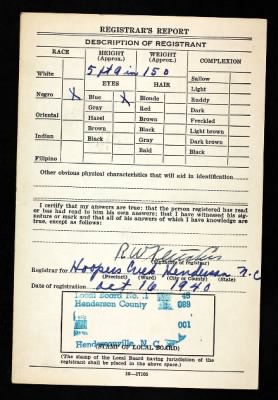 REGISTRAR'S REPORT
DESCRIPTION OF REGISTRANT
RACE HEIGHT (Approx.) WEIGHT (Approx.) COMPLEXION
White 5 ft 9 in 150 Sallow
EYES HAIR Light
Negro X Blue X Blonde Ruddy
Gray Red Dark
Oriental Hazel Brown Freckled
Brown Black Light brown
Indian Black Gray Dark brown
Bald Black
Filipino
Other obvious physical characteristics that will aid in identification
I certify that my answers are true; that the person registered has read or has had read to him his own answers; that I have witnessed his signature or mark and that all of his answers of which I have knowledge are true, except as follows:
R. W.
(Signature of registrar)
Registrar for Hoopers Creek Henderson N.C
(Precinct) (Ward) (City or County) (State)
Date of registration Oct 16 1940
Local Board No. 1 45
Henderson County 088
001
Hendersonville, N. C.
(STAMP OF LOCAL BOARD)
(The stamp of the Local Board having jurisdiction of the registrant shall be placed in the above space.)
16-17105